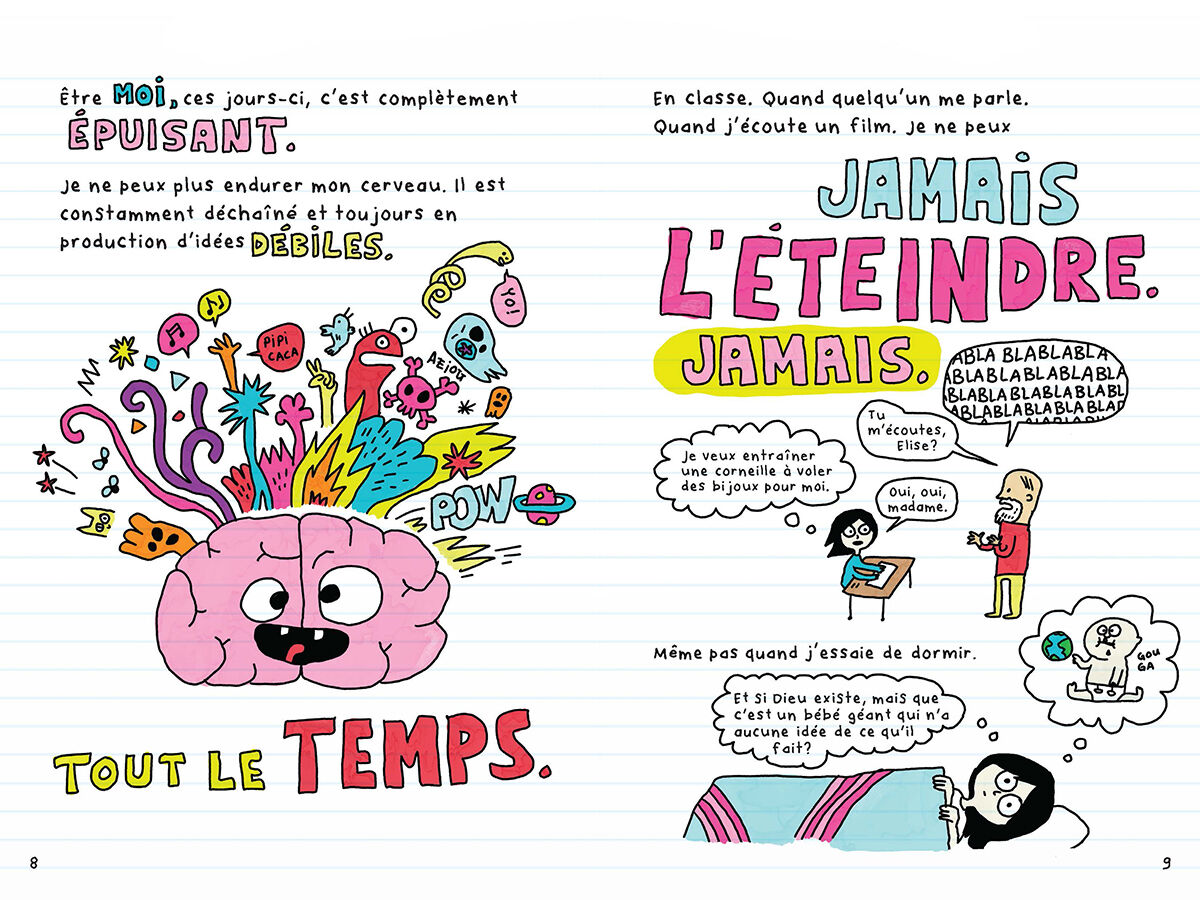 Être MOI, ces jours-ci, c'est complètement
ÉPUISANT.
Je ne peux plus endurer mon cerveau. Il est
constamment déchaîné et toujours en
production d'idées DÉBILES.
YO!
PIPI
CACA
AZIOU
POW
TOUT LE TEMPS.
8
En classe. Quand quelqu'un me parle.
Quand j'écoute un film. Je ne peux
JAMAIS
L'ÉTEINDRE.
JAMAIS.
ABLA BLABLABLA
ABLABLABLABLABLA
BLABLABLABLABL
ABLABLABLABLAB
Tu
m'écoutes,
Elise?
Je veux entraîner
une corneille à voler
des bijoux pour moi.
Oui, oui,
madame.
Même pas quand j'essaie de dormir.
GOU
GA
Et si Dieu existe, mais que
c'est un bébé géant qui n'a
aucune idée de ce qu'il
fait?
9